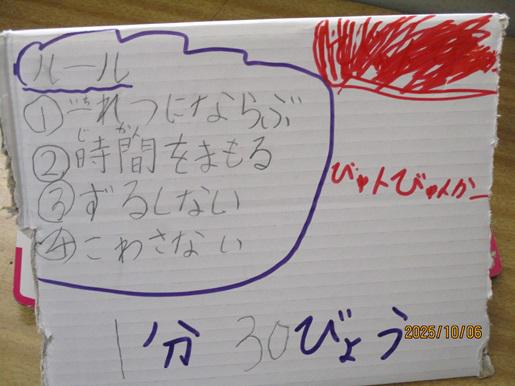 ルール
①一れつにならぶ
いち
②時間をまもる
じかん
③ずるしない
④こわさない
びゅんびゅんカー
1分30びょう
2025/10/06